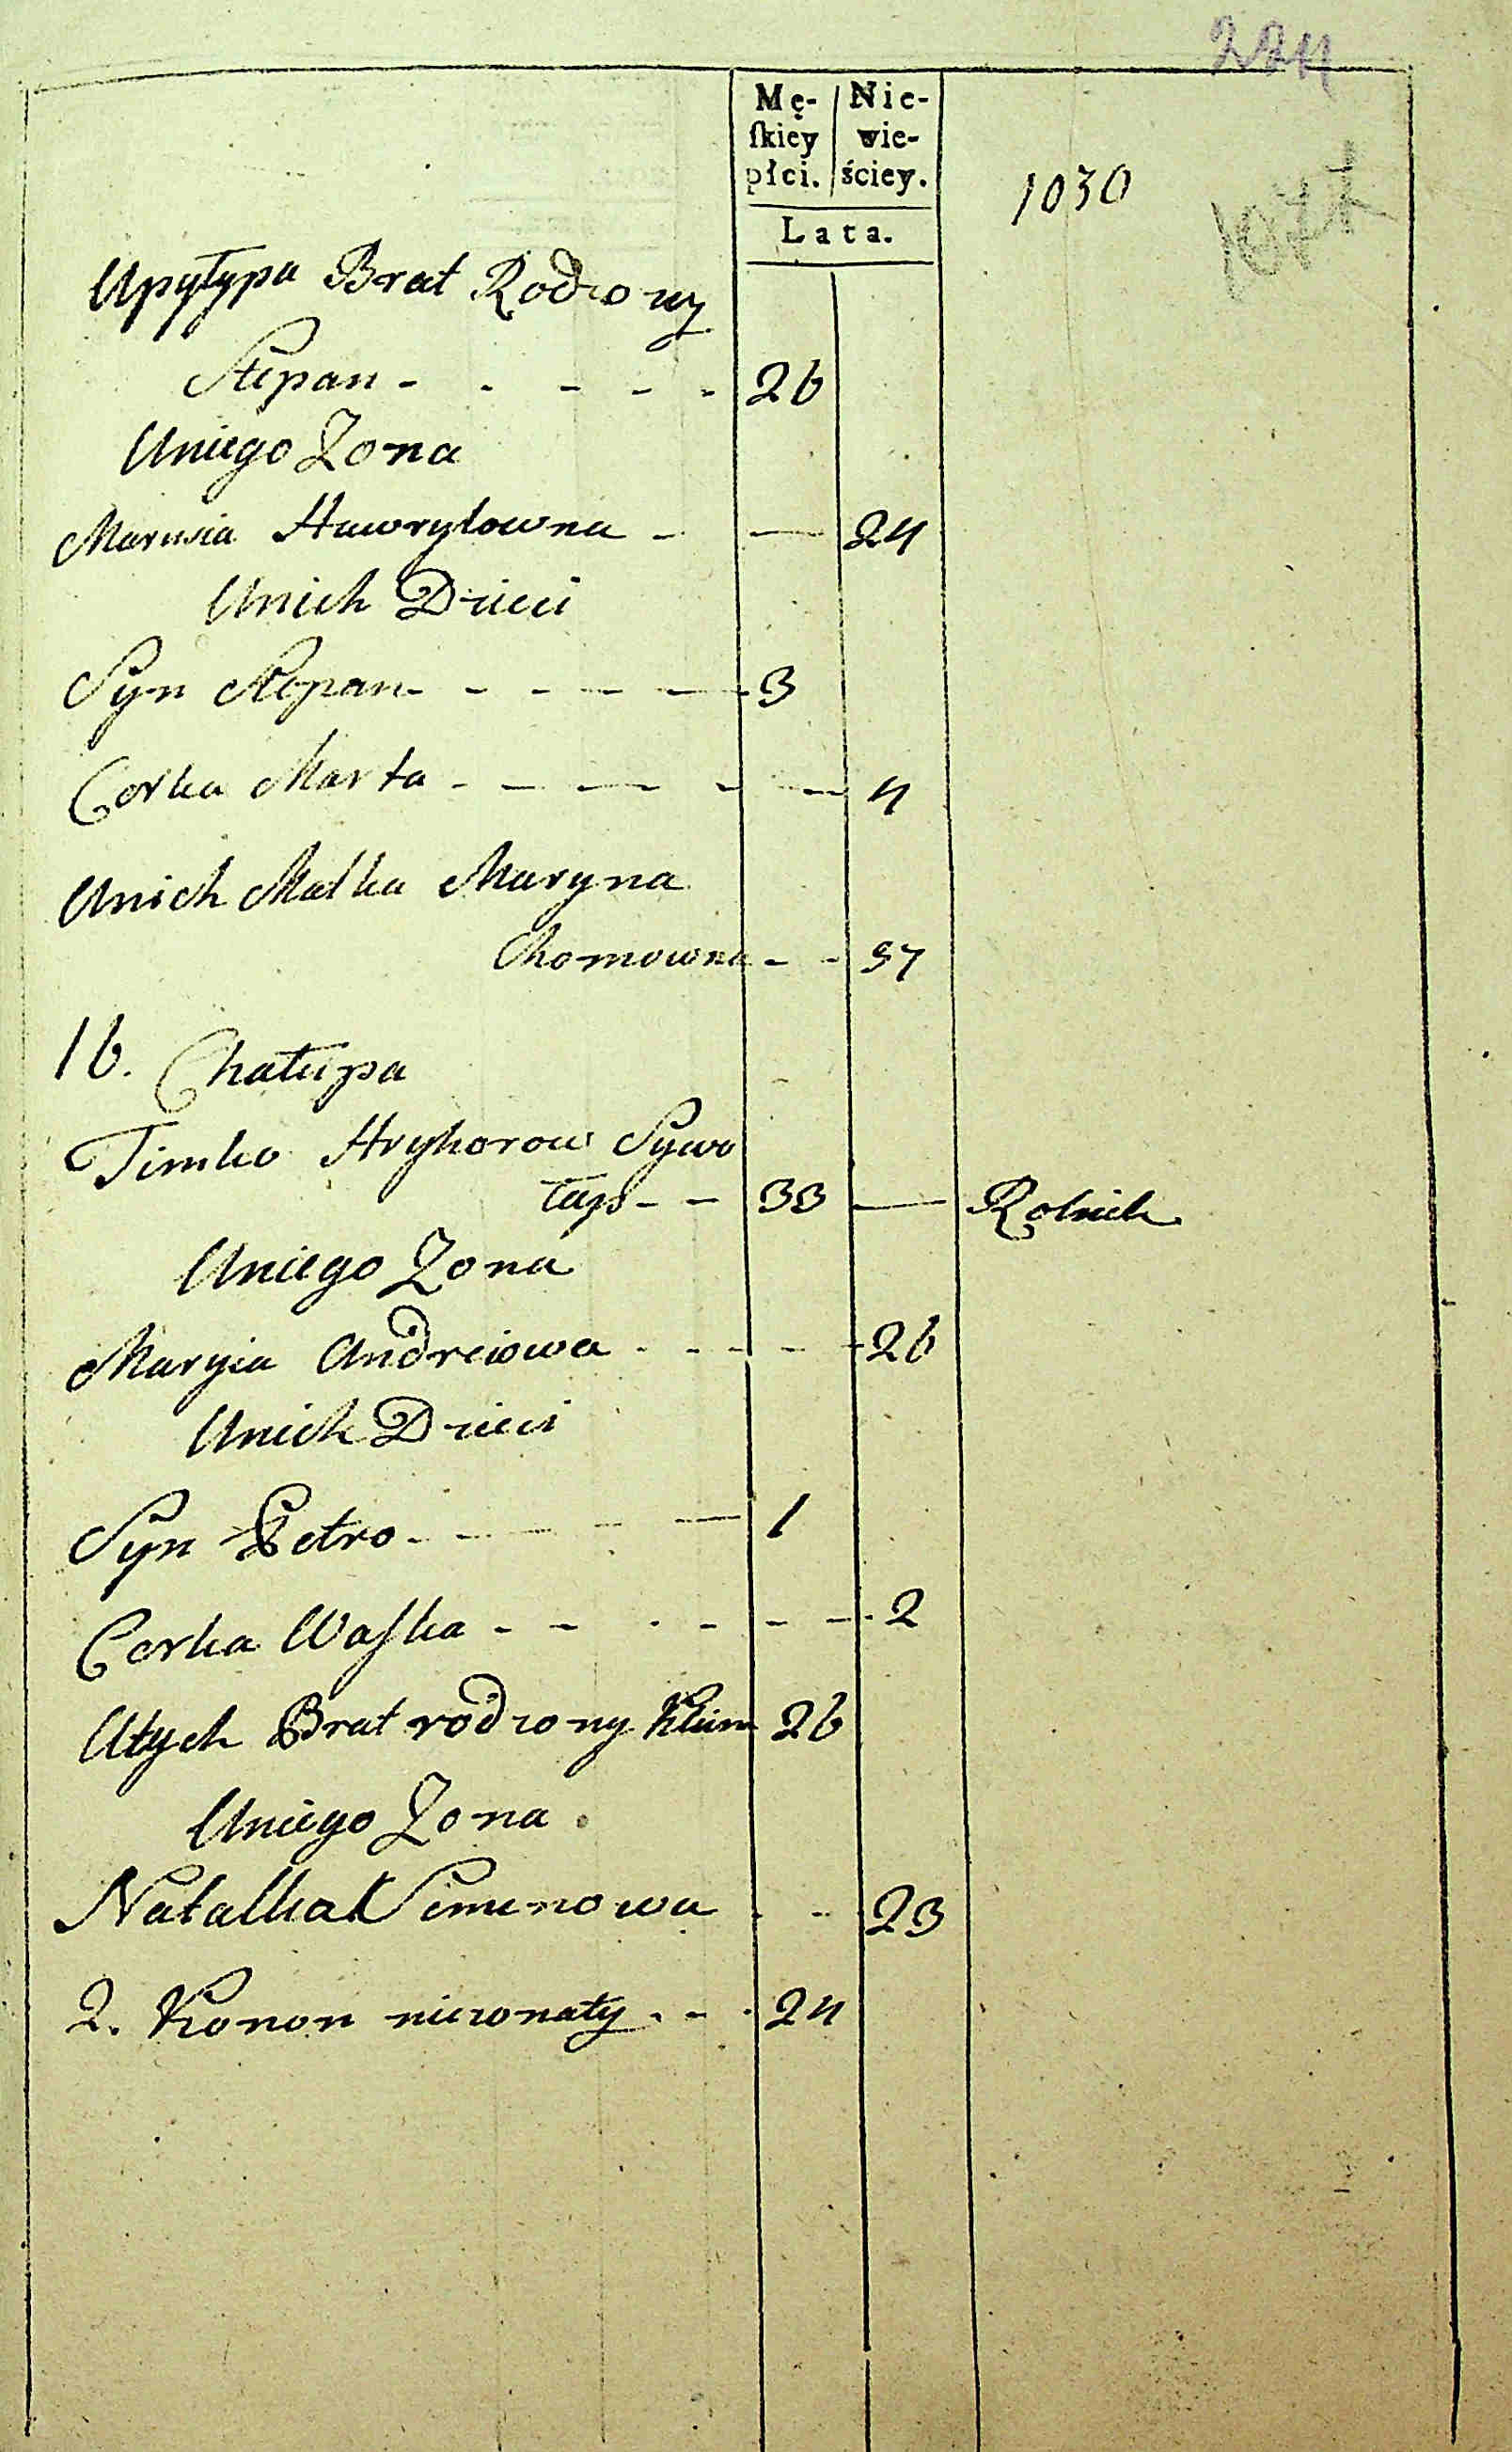 224
Mę- Nie-
ſkiey wie-
płci. ściey.
1030
Lata.
Upyłypa Brat Rodzony
Stepan - - - - - 26
Uniego Zona
Marusia Hawryłowna - — 24
Unich Dzieci
Syn Stepan - - - - - 3
Corka Marta - - - - - 4
Unich Matka Maryna
Chomowna - - 57
16. Chałupa
Timko Hryhorow Sywo
łap - - 33 — Rolnik
Uniego Zona
Maryia Andreiowa - - - - - 26
Unich Dzieci
Syn Petro - - - - 1
Corka Waſka - - - - - - 2
Utych Brat rodzony Klim 26
Uniego Zona
Natalka Semenowa - - 23
2. Konon niezonaty - - - 24